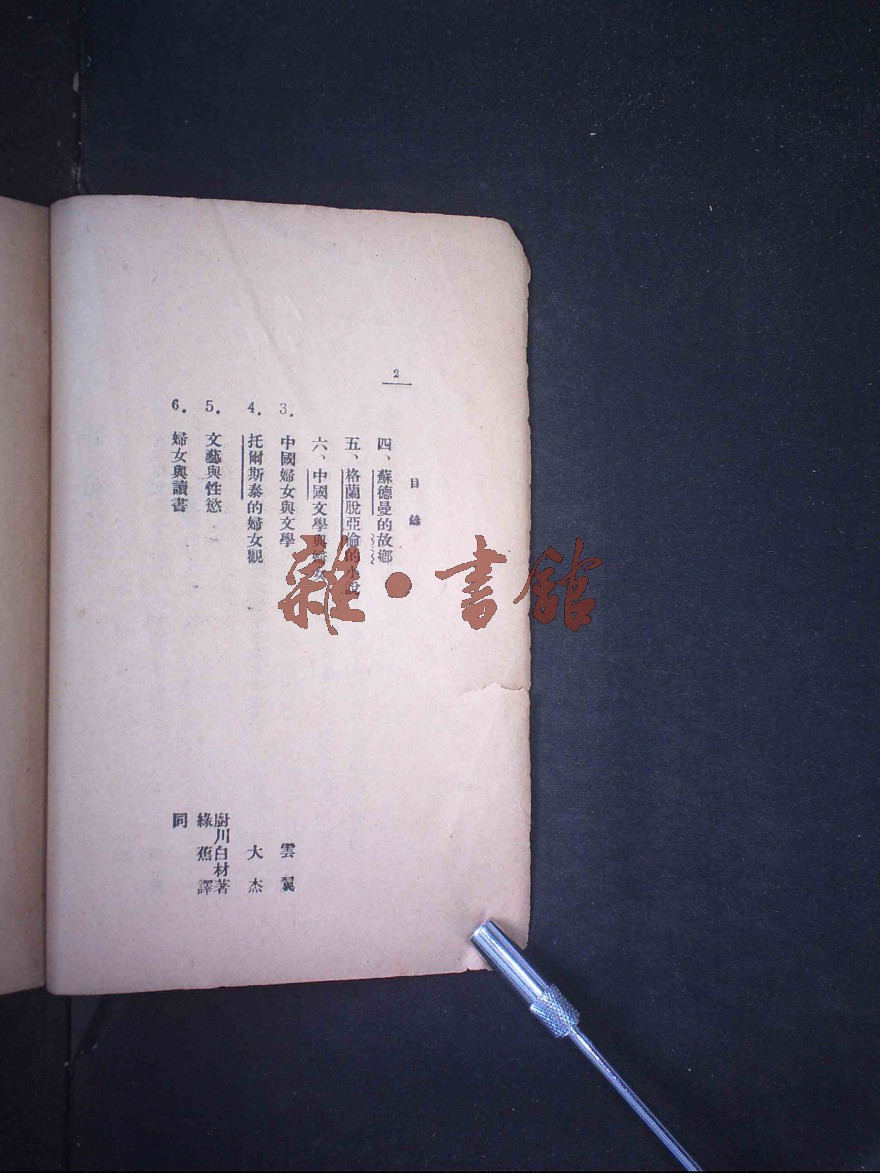 2
目錄
四、蘇德曼的故鄉
五、格蘭脫亞倫的小說
六、中國文學與婦女
3. 中國婦女與文學 雲翼
4. 托爾斯泰的婦女觀 大杰
5. 文藝與性慾 廚川白材著
綠蕉譯
6. 婦女與讀書 同
雜·書館